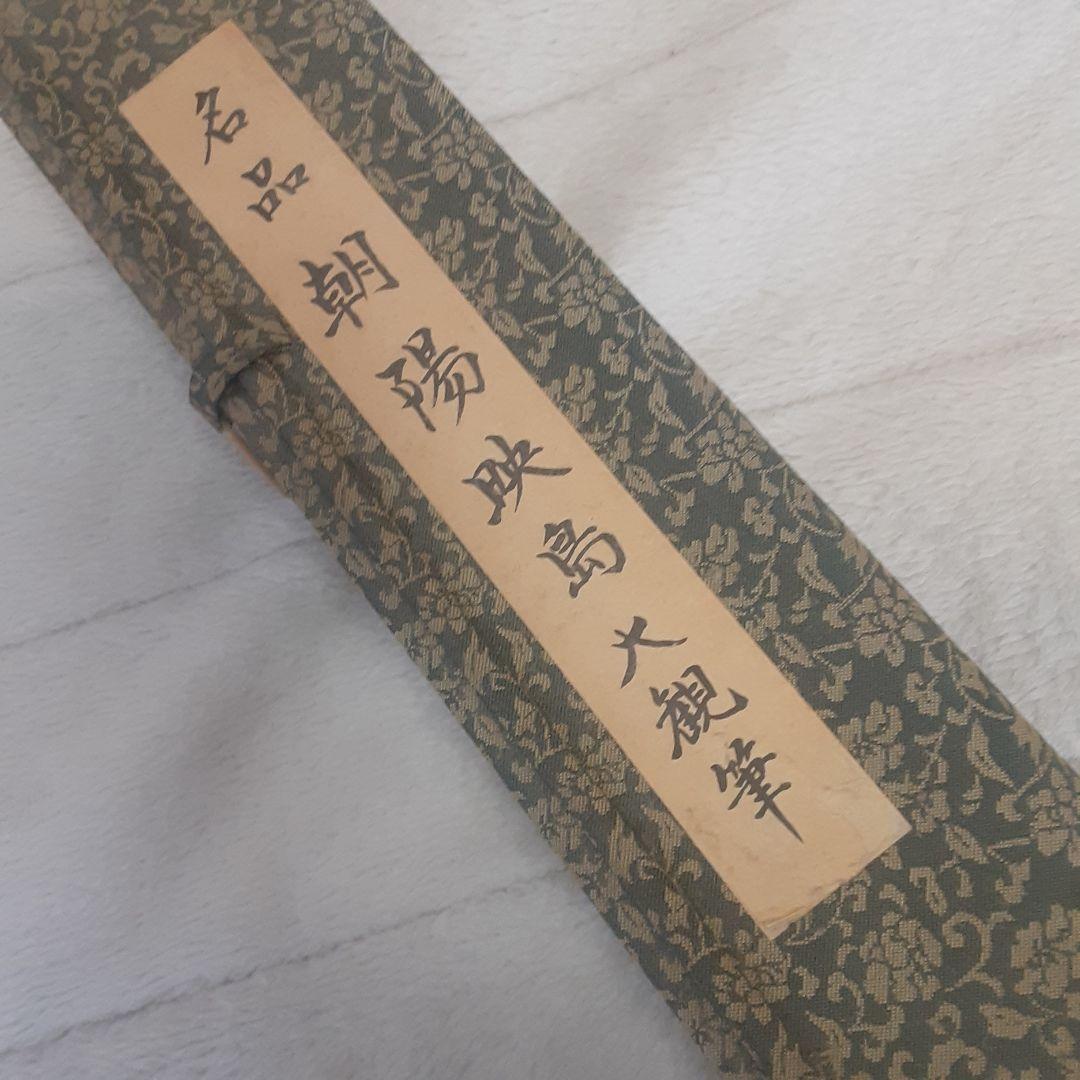 名品朝陽映島大観筆